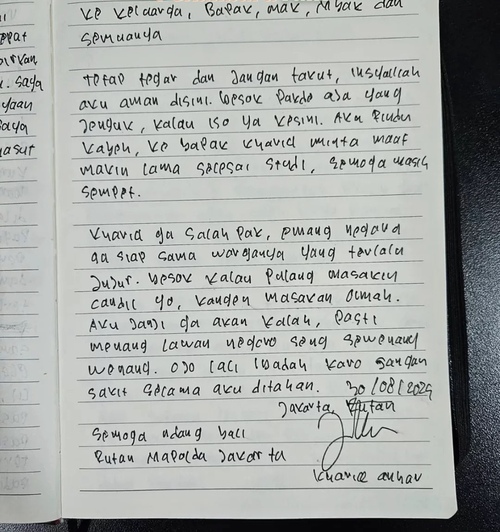 ke keluarga, Bapak, mak, Mbak dan
semuanya
Tetap tegar dan Jangan takut, insyallah
aku aman disini. besok pakde ada yang
Jenguk, kalau iso ya kesini. Aku Rindu
kabeh, ke bapak khariq minta maaf
makin lama selesai studi, semoga masih
sempet.
Khariq ga salah pak, emang negara
ga siap sama warganya yang terlalu
Jujur. besok kalau pulang masakin
candil yo, kangen masakan rumah.
Aku Janji ga akan kalah, pasti
menang lawan negoro seng sewenang
wenang. ojo lali ibadah karo jangan
sakit selama aku ditahan. 30/08/2025
Jakarta, Rutan
Semoga ndang bali
Rutan Mapolda Jakarta
Khariq anhar
epat
saya
yaan
saya